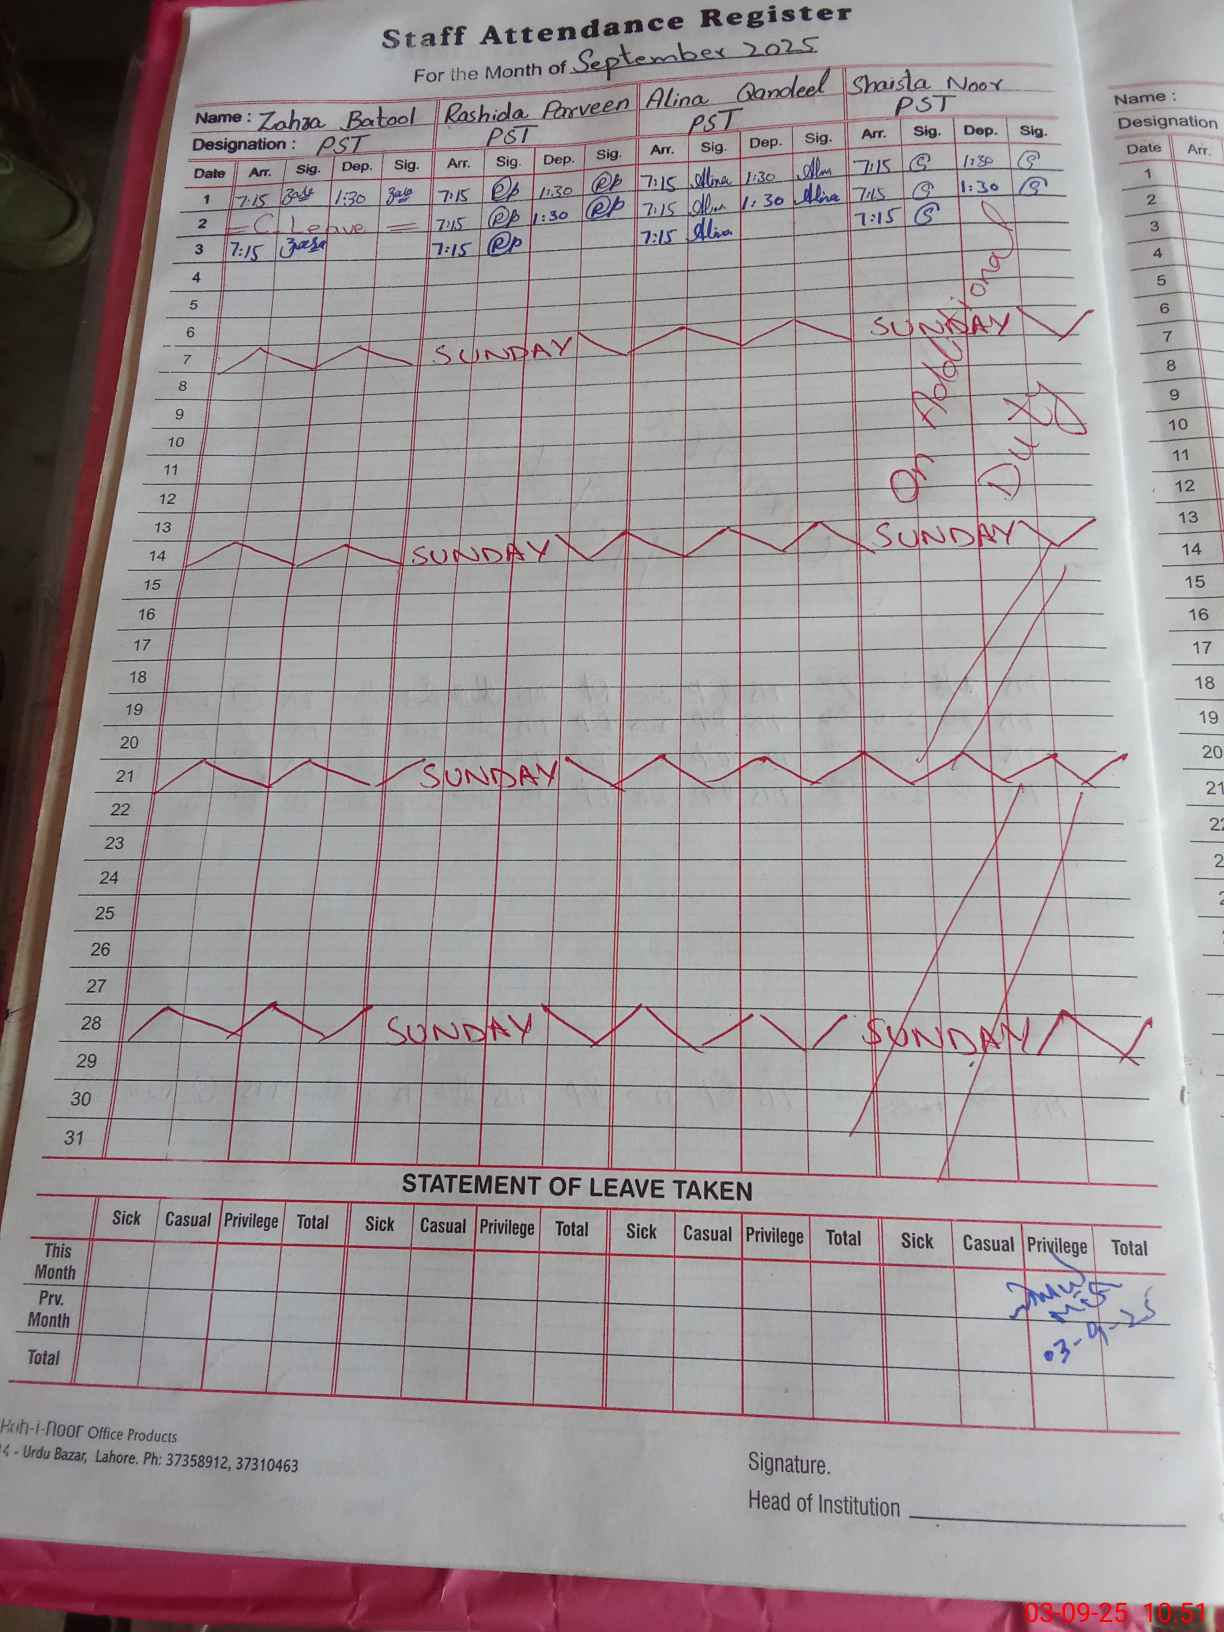 Staff Attendance Register
For the Month of September 2025
Name : Zahra Batool Rashida Parveen Alina Qandeel Shaista Noor
Designation : PST PST PST PST
Date Arr. Sig. Dep. Sig. Arr. Sig. Dep. Sig. Arr. Sig. Dep. Sig. Arr. Sig. Dep. Sig.
1 7:15 1:30 7:15 RP 1:30 RP 7:15 Alina 1:30 Alina 7:15 S 1:30 S
2 = C. Leave = 7:15 RP 1:30 RP 7:15 Alina 1:30 Alina 7:15 S 1:30 S
3 7:15 Zahra 7:15 RP 7:15 Alina 7:15 S
4
5
6
7 SUNDAY SUNDAY
8
9
10
11
12
On Additional
Duty
13
14 SUNDAY SUNDAY
15
16
17
18
19
20
21 SUNDAY
22
23
24
25
26
27
28 SUNDAY SUNDAY
29
30
31
STATEMENT OF LEAVE TAKEN
Sick Casual Privilege Total Sick Casual Privilege Total Sick Casual Privilege Total Sick Casual Privilege Total
This
Month
Prv.
Month
Total
03-9-25
Koh-i-noor Office Products
4 - Urdu Bazar, Lahore. Ph: 37358912, 37310463
Signature.
Head of Institution
Name :
Designation
Date Arr.
1
2
3
4
5
6
7
8
9
10
11
12
13
14
15
16
17
18
19
20
21
22
03-09-25 10:51